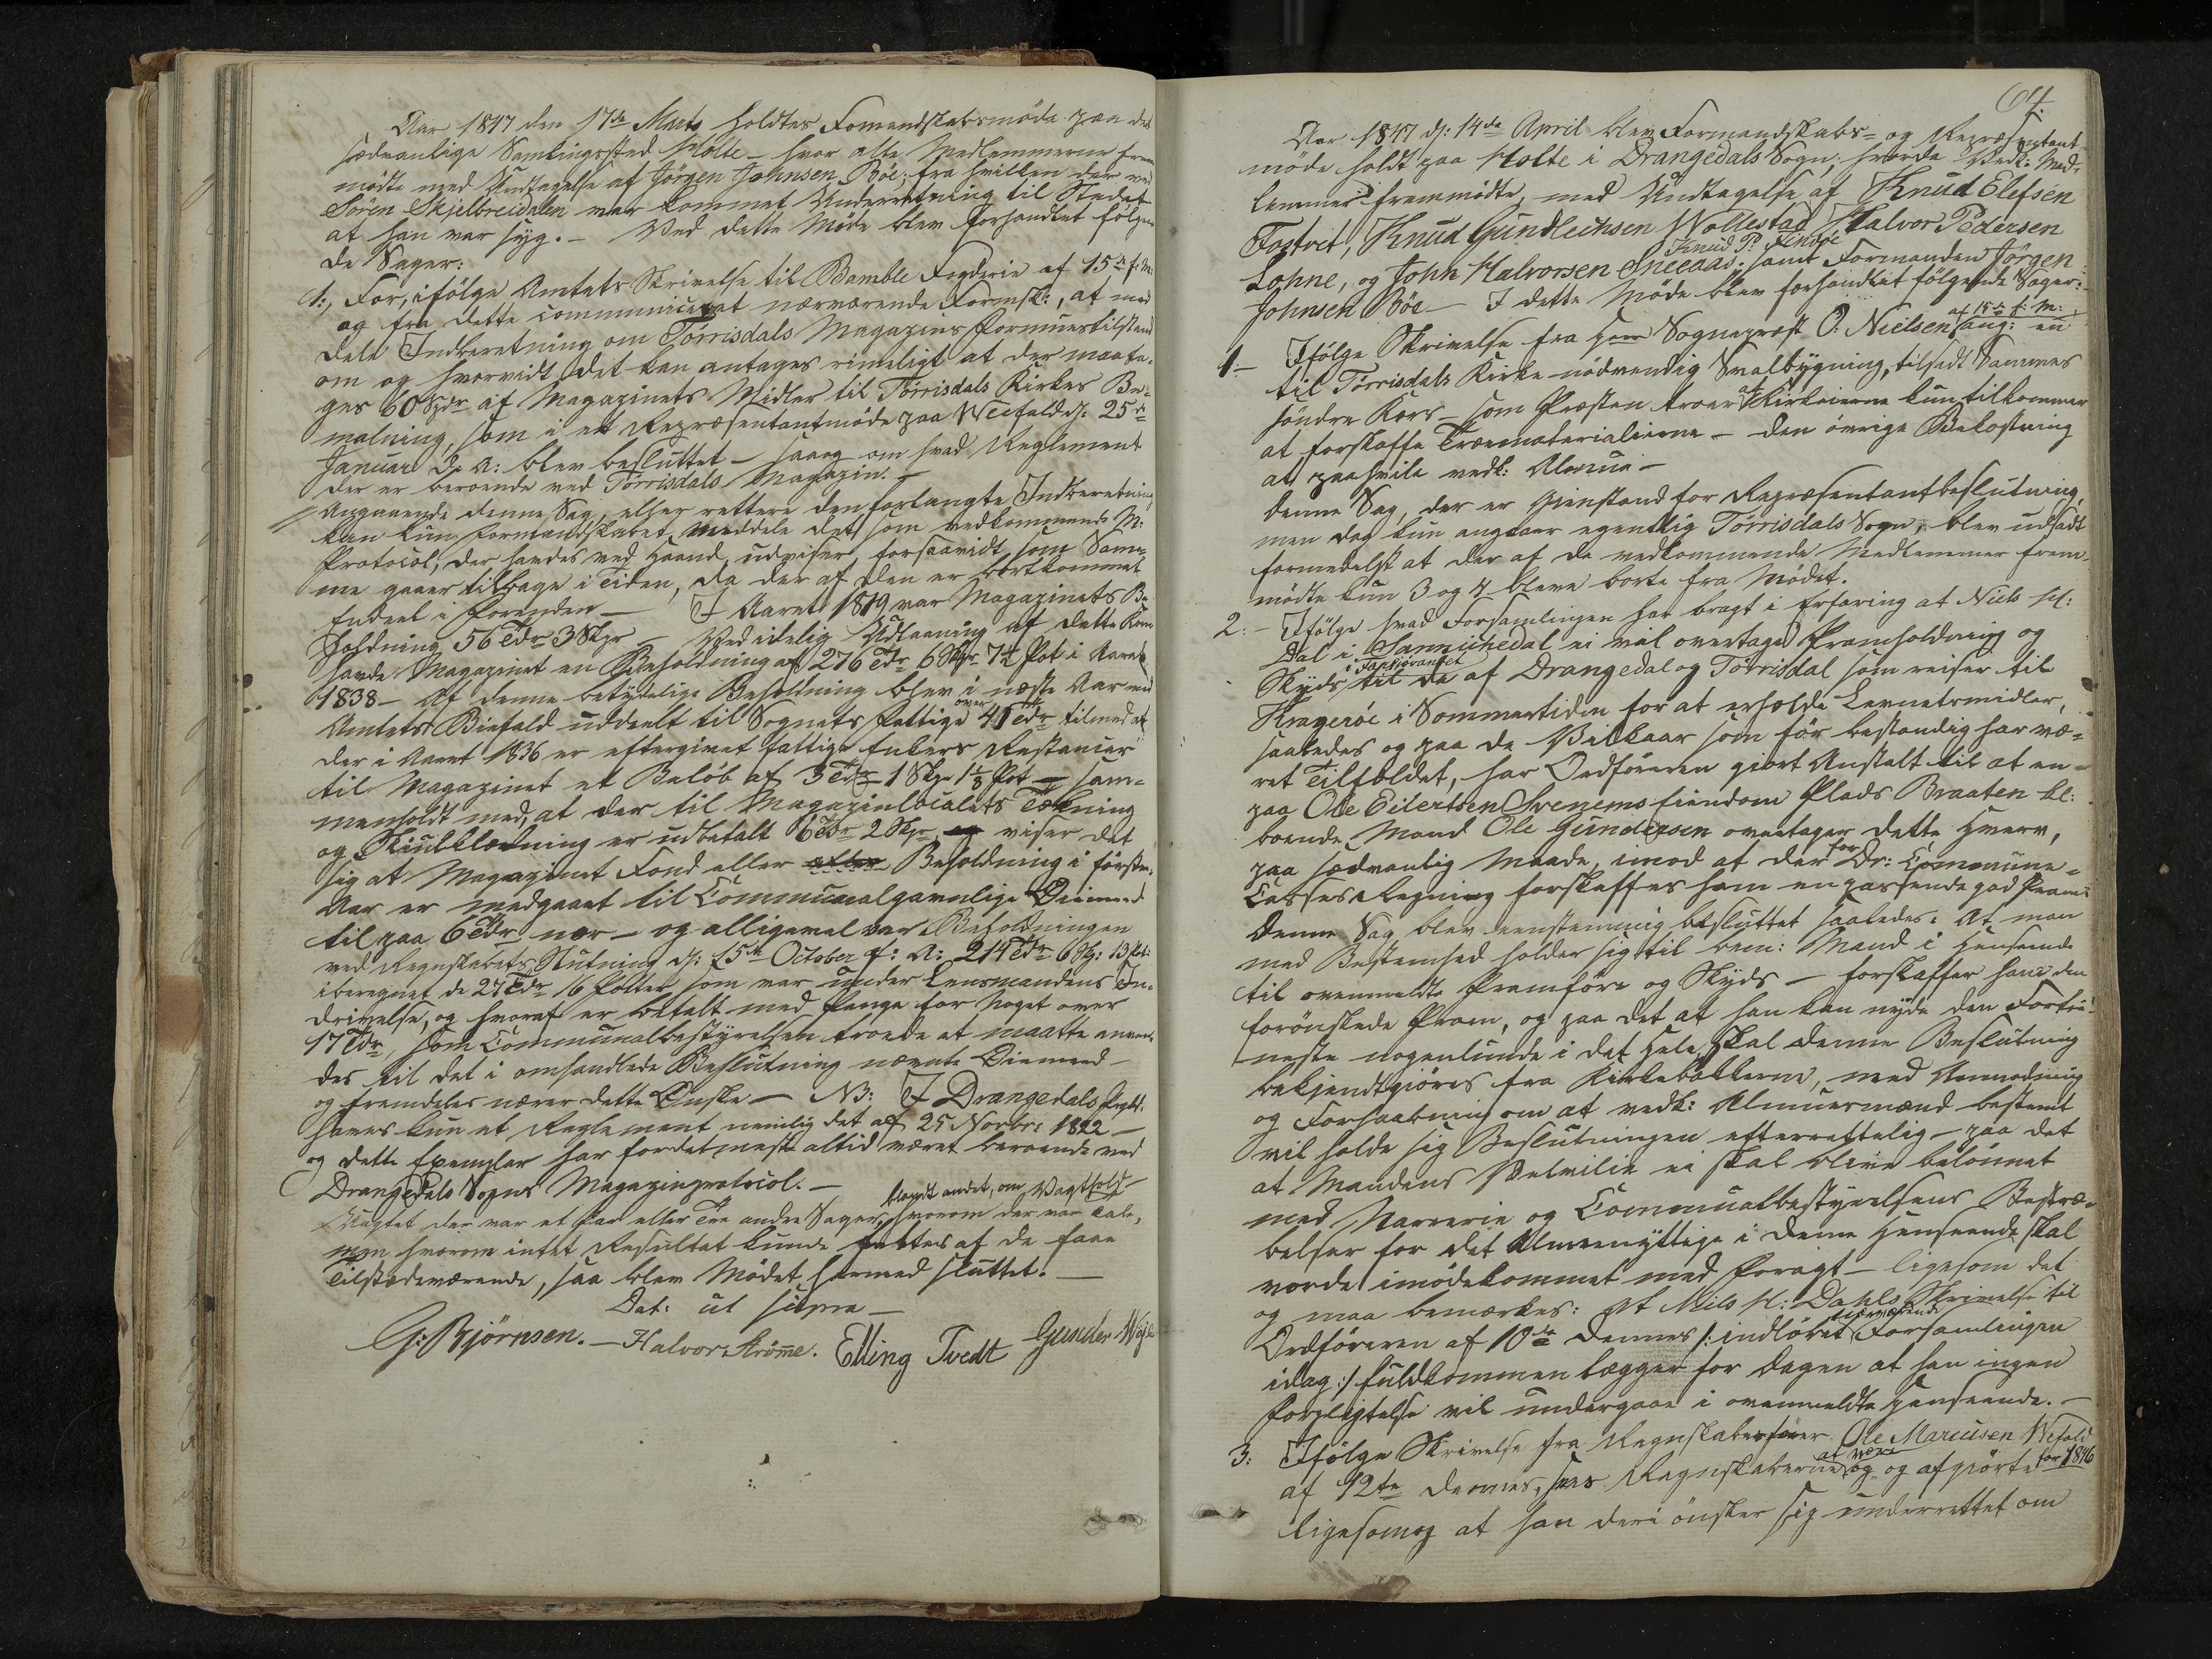 Aar 1847 den 17de Marts holdtes Fomandskabsmöde paa det
sædvanlige Samlingssted Holte – hvor alle Medlemmerne frem-
mödte med Undtagelse af Jörgen Johnsen Böe; fra hvilken der ved
Sören Skjelbreidalen var kommet Underretning til Stedet
at han var syg. – Ved dette Möde blev forhandlet fölgen-
de Sager:
1:, For, ifölge Amtets Skrivelse til Bamble Fogderie af 15de f: M:
og fra dette communiceret nærværende Formsk:, at med-
dele Indberetning om Törrisdals Magazins Formuestilstand
om og hvorvidt det kan antages rimeligt at der maa ta-
ges 60 Spdr af Magazinets Midler til Törrisdals Kirkes Be-
malning, som i et Repræsentantmöde paa Weefald d: 25de
Januar d. A: blev besluttet – saavg om hvad Reglement
der er beroende ved Törrisdals Magazin. –
Angaaende denne Sag, eller rettere den forlangte Indberetning
kan kun Formandskabet meddele det som vedkommende M:
Protocol, der havdes ved Haand, udviser, forsaavidt som Sam-
me gaaer tilbage i Tiden, da der af den er bortkommet
Endeel i Forenden – I Aaret 1819 var Magazinets Be-
holdning 56 Tdr 3 Skpr – Ved idelig Udlaaning af dette Korn
havde Magazinet en Beholdning af 276 Tdr 6 Skpr 7½ Pot i Aaret
1838 – Af denne betydelige Beholdning blev i næste Aar med
Amtets Biefald uddeelt til Sognets Fattige over 41 Tdr tilmed at
der i Aaret 1836 er eftergivet fattige Enkers Restancer
til Magazinet et Beløb af 3 Tdr 1 Skp 1½ Pot – sam-
menholdt med, at der til Magazinlocalets Tækning
og Skuulklædning er udbetalt 6 Tdr 2 Skpr viser det
sig at Magazinet Fond eller Beholdning i förste
Aar er medgaaet til Communalgavnlige Öiemed
til paa 6 Tdr nær – og alligevel var Beholdningen
ved Regnskabets Slutning d: 15de October f: A: 214 Tdr 6 Sk: 13 Pot:
iberegnet de 27 Tdr 16 Potter som var under Lensmandens In-
drivelse, og hvoraf er betalt med Penge for Noget over
17 Tdr, som Communalbestyrelsen troede at maatte anven-
des til det i omhandlede Beslutning nævnte Öiemed
og fremdeles nærer dette Önske – NB: I Drangedals Prgld:
haves kun et Reglement nemlig det af 25 Novbr: 1822 –
og dette Exemplar har fordetmeste altid været beroende ved
Drangedals Sogns Magazinprotocol. –
Uagtet der var et Par eller Tre andre Sager, blandt andet, om Vagthold – hvorom der var Tale,
men hvorom intet Resultat kunde fattes af de faae
Tilstedeværende, saa blev Mödet hermed sluttet. –
Dat: ut supra –
G: Björnsen. – Halvor Strömme. Elling Tvedt Gunder
64.
Aar 1847 d: 14de April blev Formandskabs- og Repræsentant-
möde holdt paa Holte i Drangedals Sogn; hvorda Vedk: Med-
lemmer fremmödte, med Undtagelse af Knud Elefsen
Tostveit, Knud Gundlechsen Wollestad, Halvor Pedersen
Lohne, og John Halvorsen Sneeaas, Knud P: Findöe samt Formanden Jörgen
Johnsen Böe – I dette Möde blev forhandlet fölgende Sager:
1 – Ifölge Skrivelse fra Herr Sognepræst O: Nielsen af 15de f: M: ang: en
til Törrisdals Kirke nödvendig Svalbygning, tilsadt Sammes
söndre Kors – som Præsten troer at Kirkeierne kun tilkommer
at forskaffe Træmaterialierne – den övrige Bekostning
at paahvile vedk: Almue –
Denne Sag, der er Gjenstand for Repræsentantbeslutning,
men dog kun angaaer egentlig Törrisdals Sogn, blev udsadt
formedelst at der af de vedkommende Medlemmer frem-
mödte kun 3 og 4 bleve borte fra Mödet.
2: – Ifölge hvad Forsamlingen har bragt i Erfaring at Niels H:
Dal i Sannikedal ei vil overtage Pramholdning og
Skyds i Tapsiövandet til de af Drangedal og Törrisdal som reiser til
Kragerøe i Sommertiden for at erholde Levnetsmidler,
saaledes og paa de Vilkaar som för bestandig har væ-
ret Tilfældet, har Ordföreren giort Anstalt til at en
paa Ole Eilertsen Svenems Eiendom Plads Braaten kl:
boende Mand Ole Gundersen overtager dette Hverv,
paa sædvanlig Maade, imod at der for Dr: Commune-
Casses Regning forskaffes ham en passende god Pram:
Denne Sag blev eenstemmig besluttet saaledes: At man
med Bestemthed holder sig til bem: Mand i Henseende
til ovenmeldte Pramföre og Skyds – forskaffer ham den
forönskede Pram, og paa det at han kan nyde den Fortie-
neste nogenlunde i det Hele, skal denne Beslutning
bekjendtgiöres fra Kirkebakkerne, med Anmodning
og Forhaabning om at vedk: Almuesmænd bestemt
vil holde sig Beslutningen efterrettelig – paa det
at Mandens Velvilie ei skal blive belönnet
med Narrerie og Communalbestyrelsens Bestræ-
belser for det Almeennyttige i denne Henseende skal
vorde imödekommet med Foragt – ligesom det
og maa bemærkes: At Niels H: Dahls Skrivelse til
Ordföreren af 10de dennes /: indlöbet nærværende Forsamlingen
idag :/ fuldkommen lægger for Dagen at han ingen
Forpligtelse vil undergaae i ovenmeldte Henseende. –
3: Ifölge Skrivelse fra Regnskabsförer Ole Marcusen Wefald
af 12te dennes, Regnskaberne at være og afgiörte for 1846
ligesomog at han deri önsker sig underrettet om